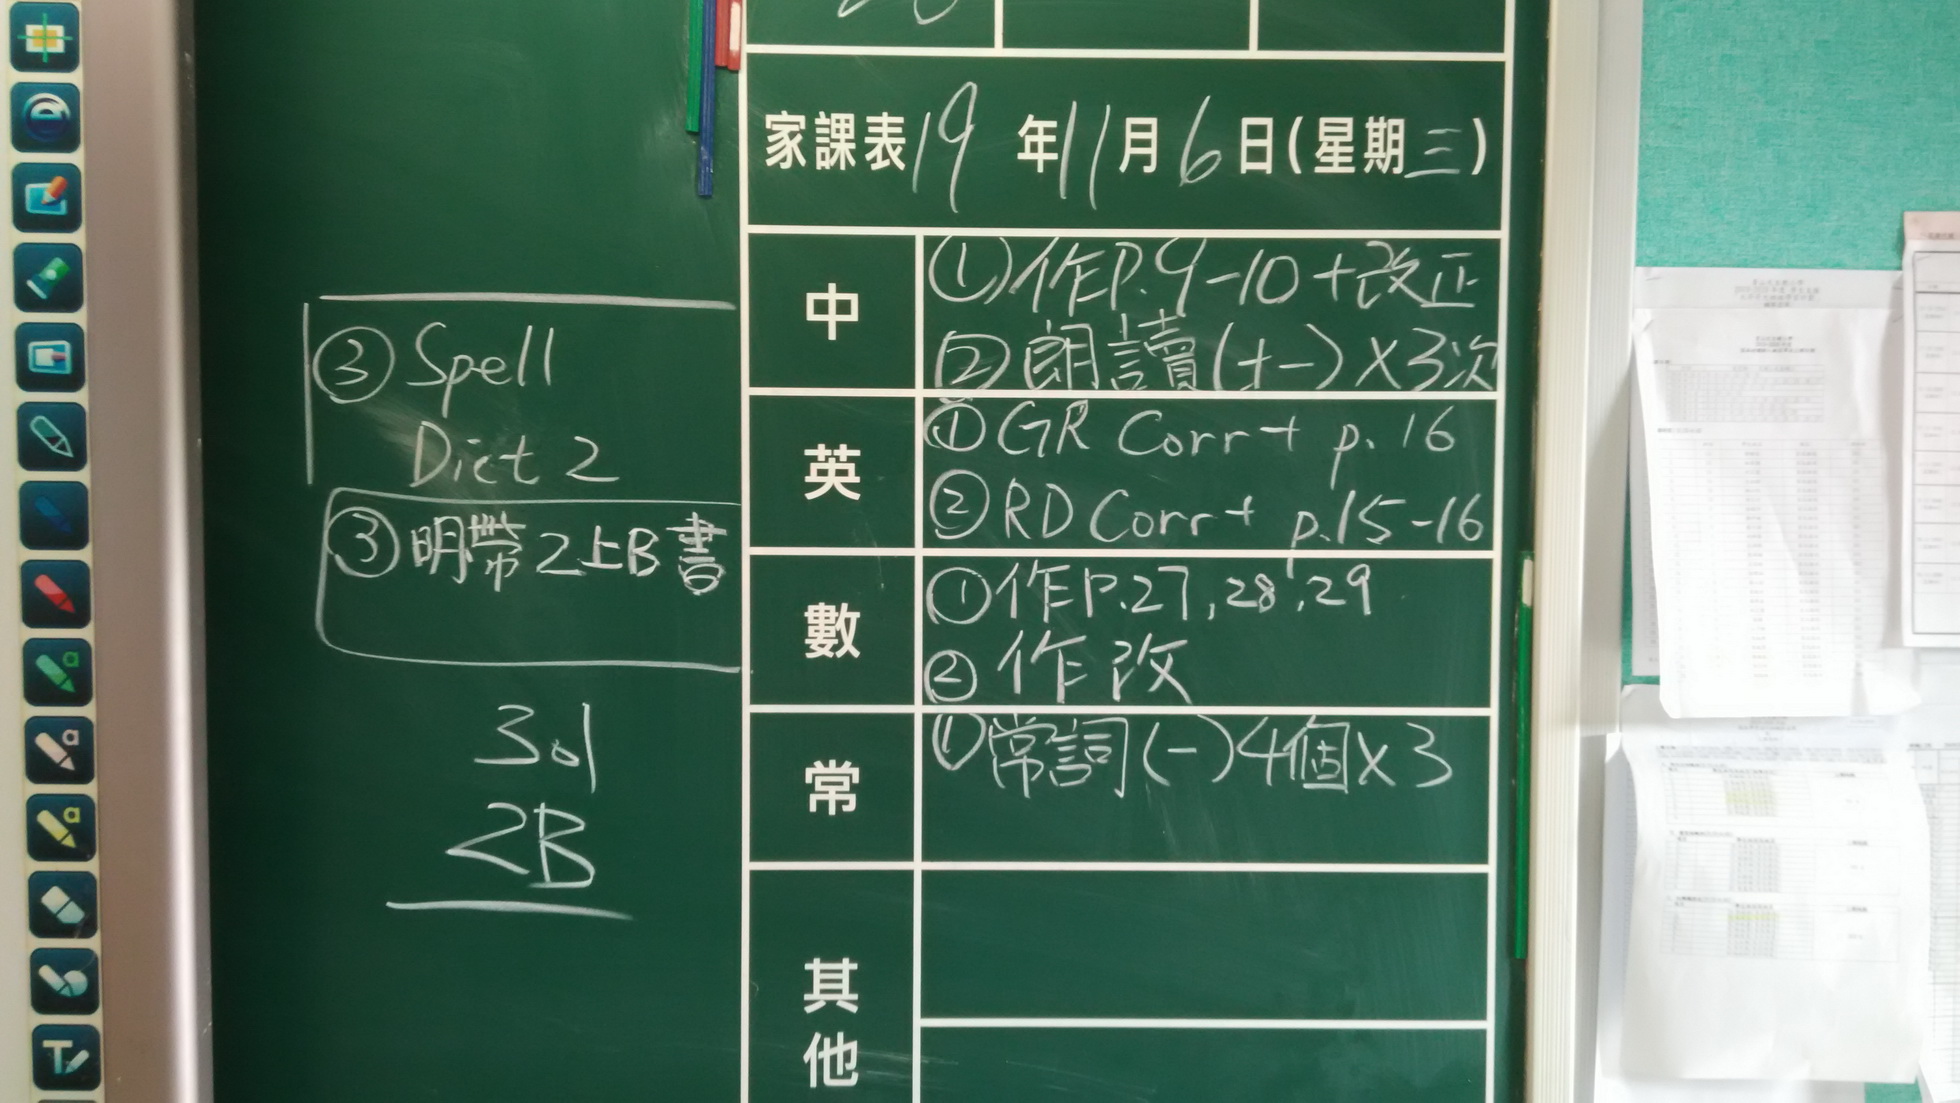 家課表19年11月6日(星期三)
中
①作P.9-10+改正
②朗讀(十一)×3次
英
①GR Corr+ p.16
②RD Corr+ p.15-16
③Spell
Dict 2
數
①作P.27,28,29
②作改
③明帶2上B書
常
①常詞(一)4個×3
301
2B
其他